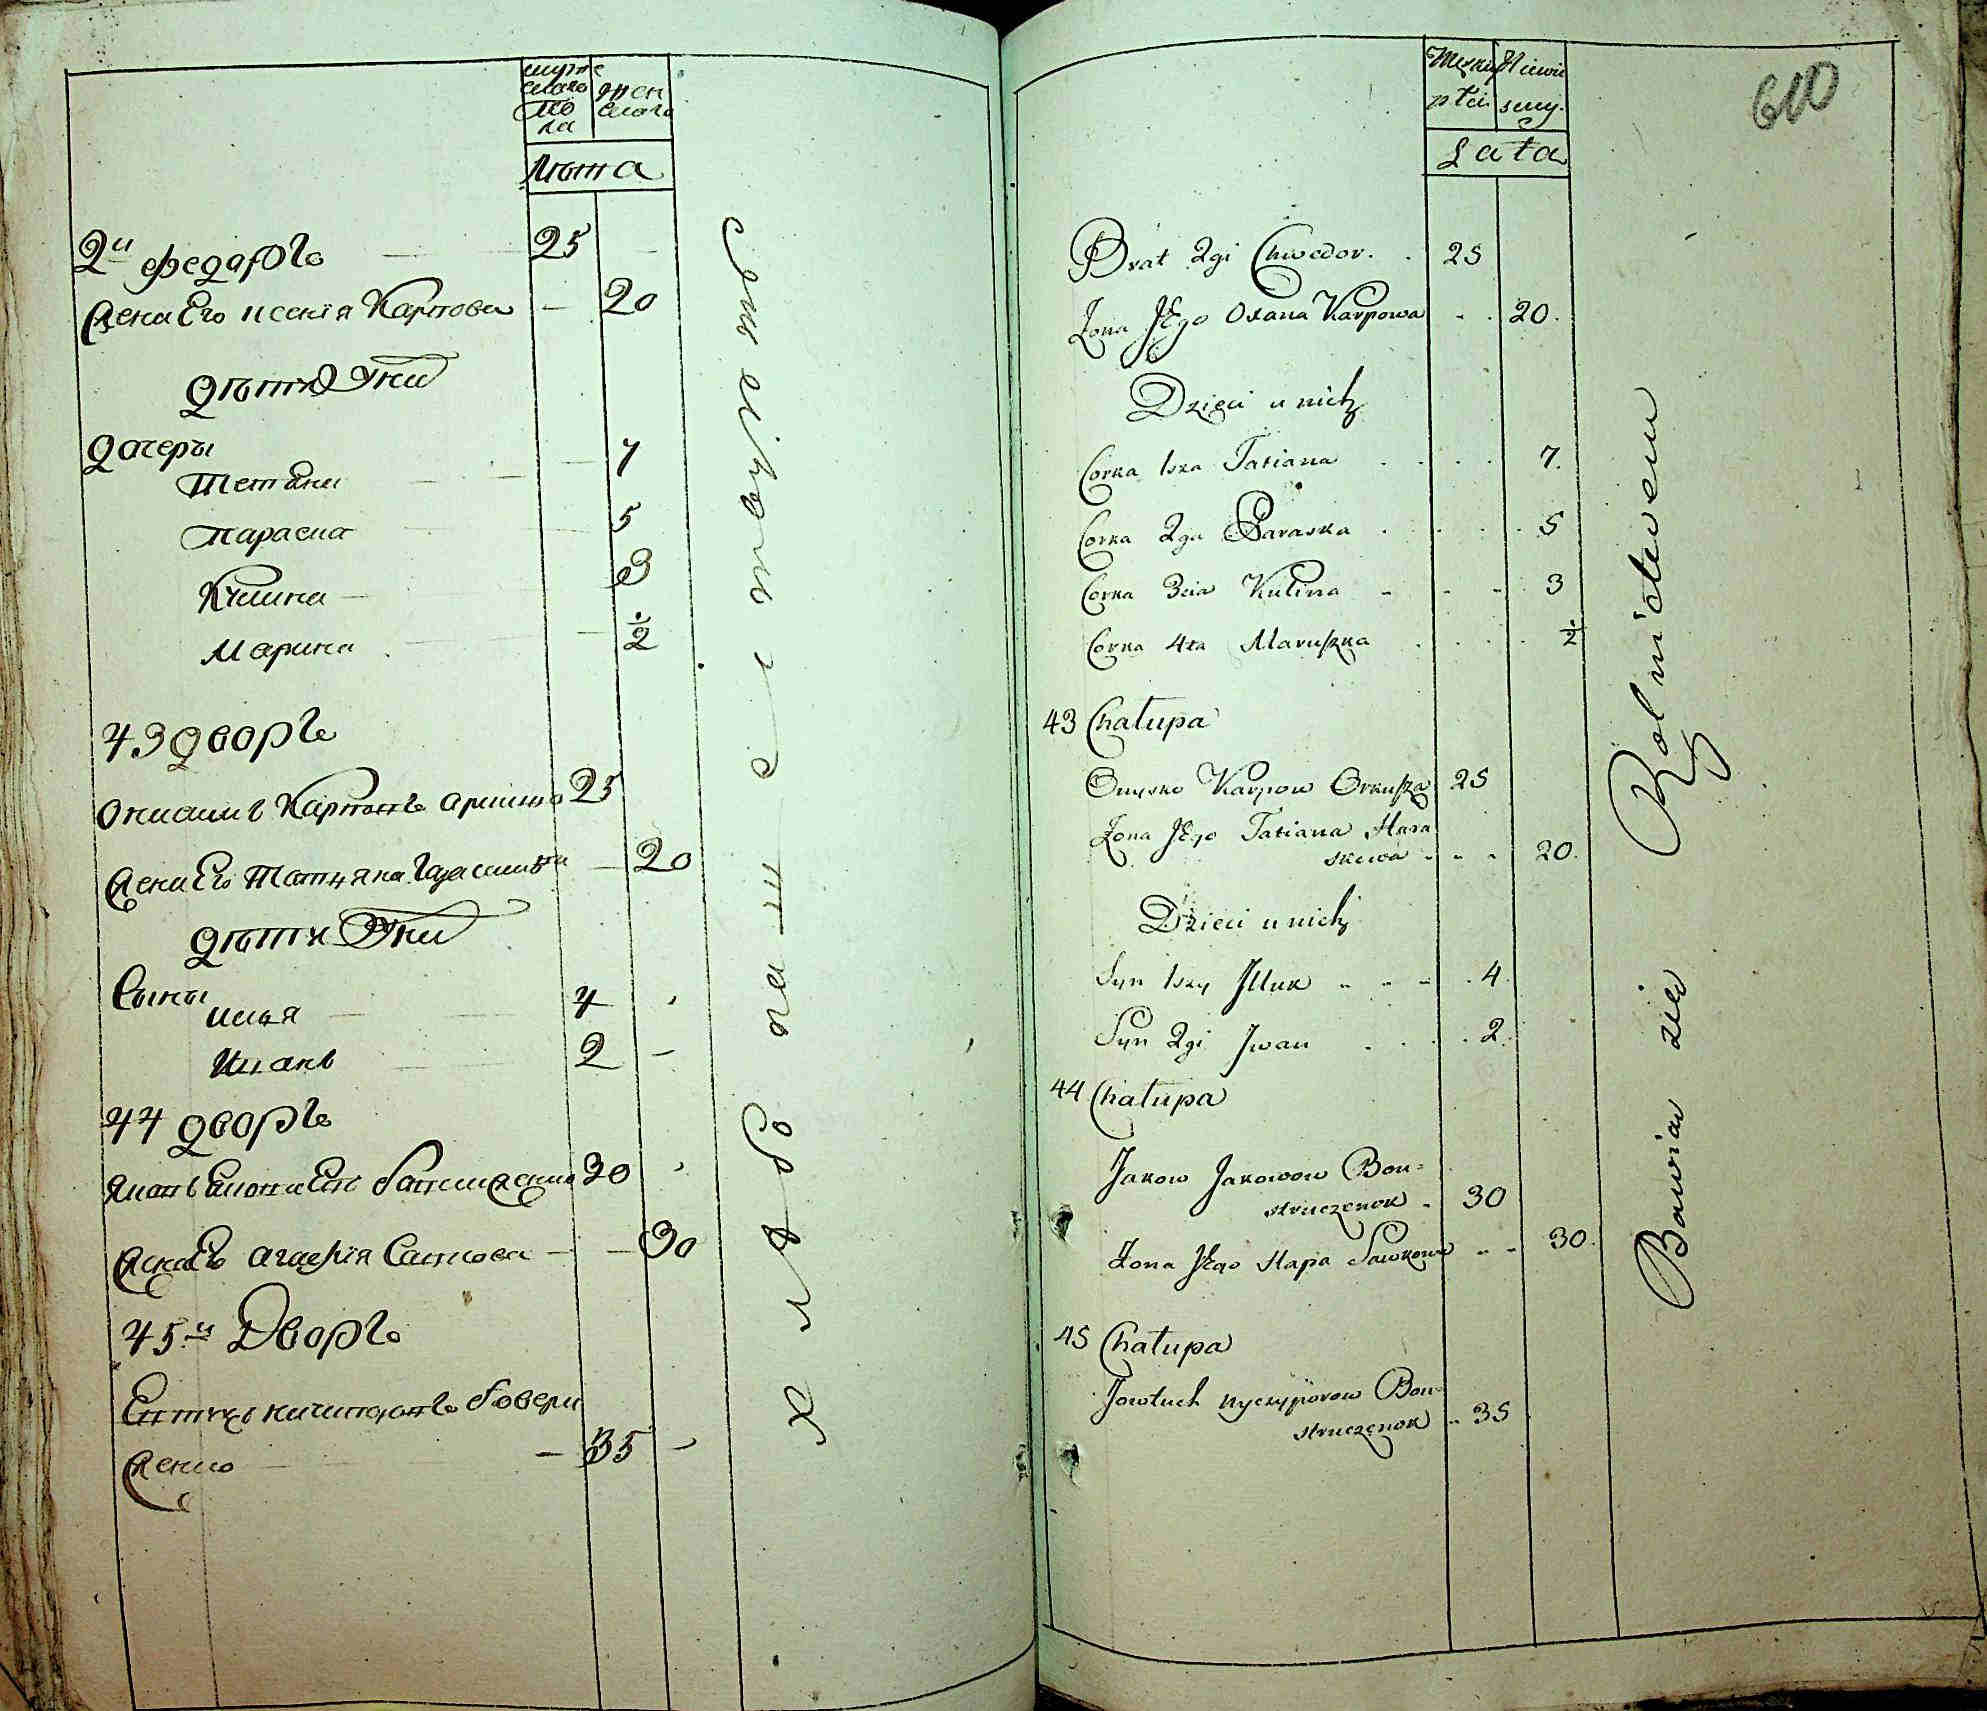 мужескаго пола
женскаго
Лѣта
2й Федоръ 25
Жена Его Ксенія Карпова 20
Дѣти Ихъ
Дочеры
Тетяна 7
Параска 5
Кулина 3
Марина ½
43 Дворъ
Карповъ 25
Жена Его Татияна 20
Дѣти Ихъ
Сыны
Илья 4
Иванъ 2
44 дворъ
30
Жена Его Агафія 30
45й Дворъ
35
Męzkiey płci
Niewieściey
Lata
610
Brat 2gi Chwedor 25
Zona JEgo Oxana Karpowa 20
Dzieci u nich
Corka 1sza Tatiana 7
Corka 2ga Paraska 5
Corka 3cia Kulina 3
Corka 4ta Maruszka ½
43 Chałupa
Omysko Karpow Orkusza 25
Zona JEgo Tatiana Hara
skowa 20
Dzieci u nich
Syn 1szy Illuk 4
Syn 2gi Jwan 2
44 Chałupa
Jakow Jakowow Bon=
struczenok 30
Zona JEgo Hapa Sawkowa 30
45 Chałupa
Jowtuch Nyczyporow Bon=
struczenok 35
Bawian sie Rolnictwem